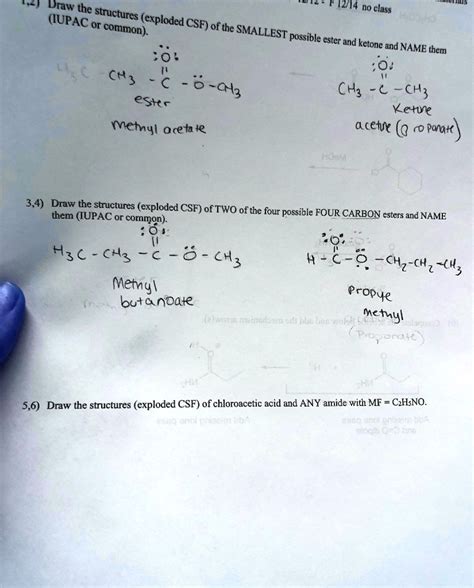 1,2) Draw the structures (exploded CSF) of the SMALLEST possible ester and ketone and NAME them
F 12/14 no class
(IUPAC or common).
:O:
CH3 - C - O - CH3
ester
methyl acetate
:O:
CH3 - C - CH3
Ketone
acetone
3,4) Draw the structures (exploded CSF) of TWO of the four possible FOUR CARBON esters and NAME
them (IUPAC or common).
:O:
H3C - CH3 - C - O - CH3
Methyl
butanoate
:O:
H - C - O - CH2-CH2-CH3
Propye
methyl
(Propionate)
5,6) Draw the structures (exploded CSF) of chloroacetic acid and ANY amide with MF = C2H5NO.